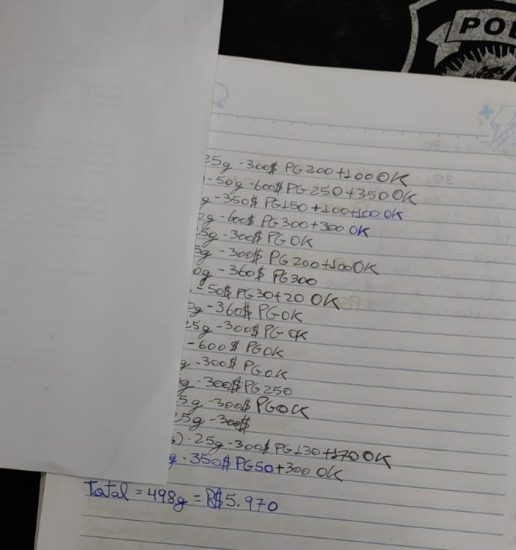 POL
25g - 300$ PG 200 + 100 OK
- 50g - 600$ PG 250 + 350 OK
g - 350$ PG 150 + 100 + 100 OK
0g - 600$ PG 300 + 300 OK
5g - 300$ PG OK
5g - 300$ PG 200 + 100 OK
0g - 360$ PG 300
- 50$ PG 30 + 20 OK
0g - 360$ PG OK
25g - 300$ PG OK
- 600$ PG OK
g - 300$ PG OK
g - 300$ PG 250
5g - 300$ PG OK
25g - 300$
) - 25g - 300$ PG 130 + 170 OK
g - 350$ PG 50 + 300 OK
Total = 498g = R$ 5.970